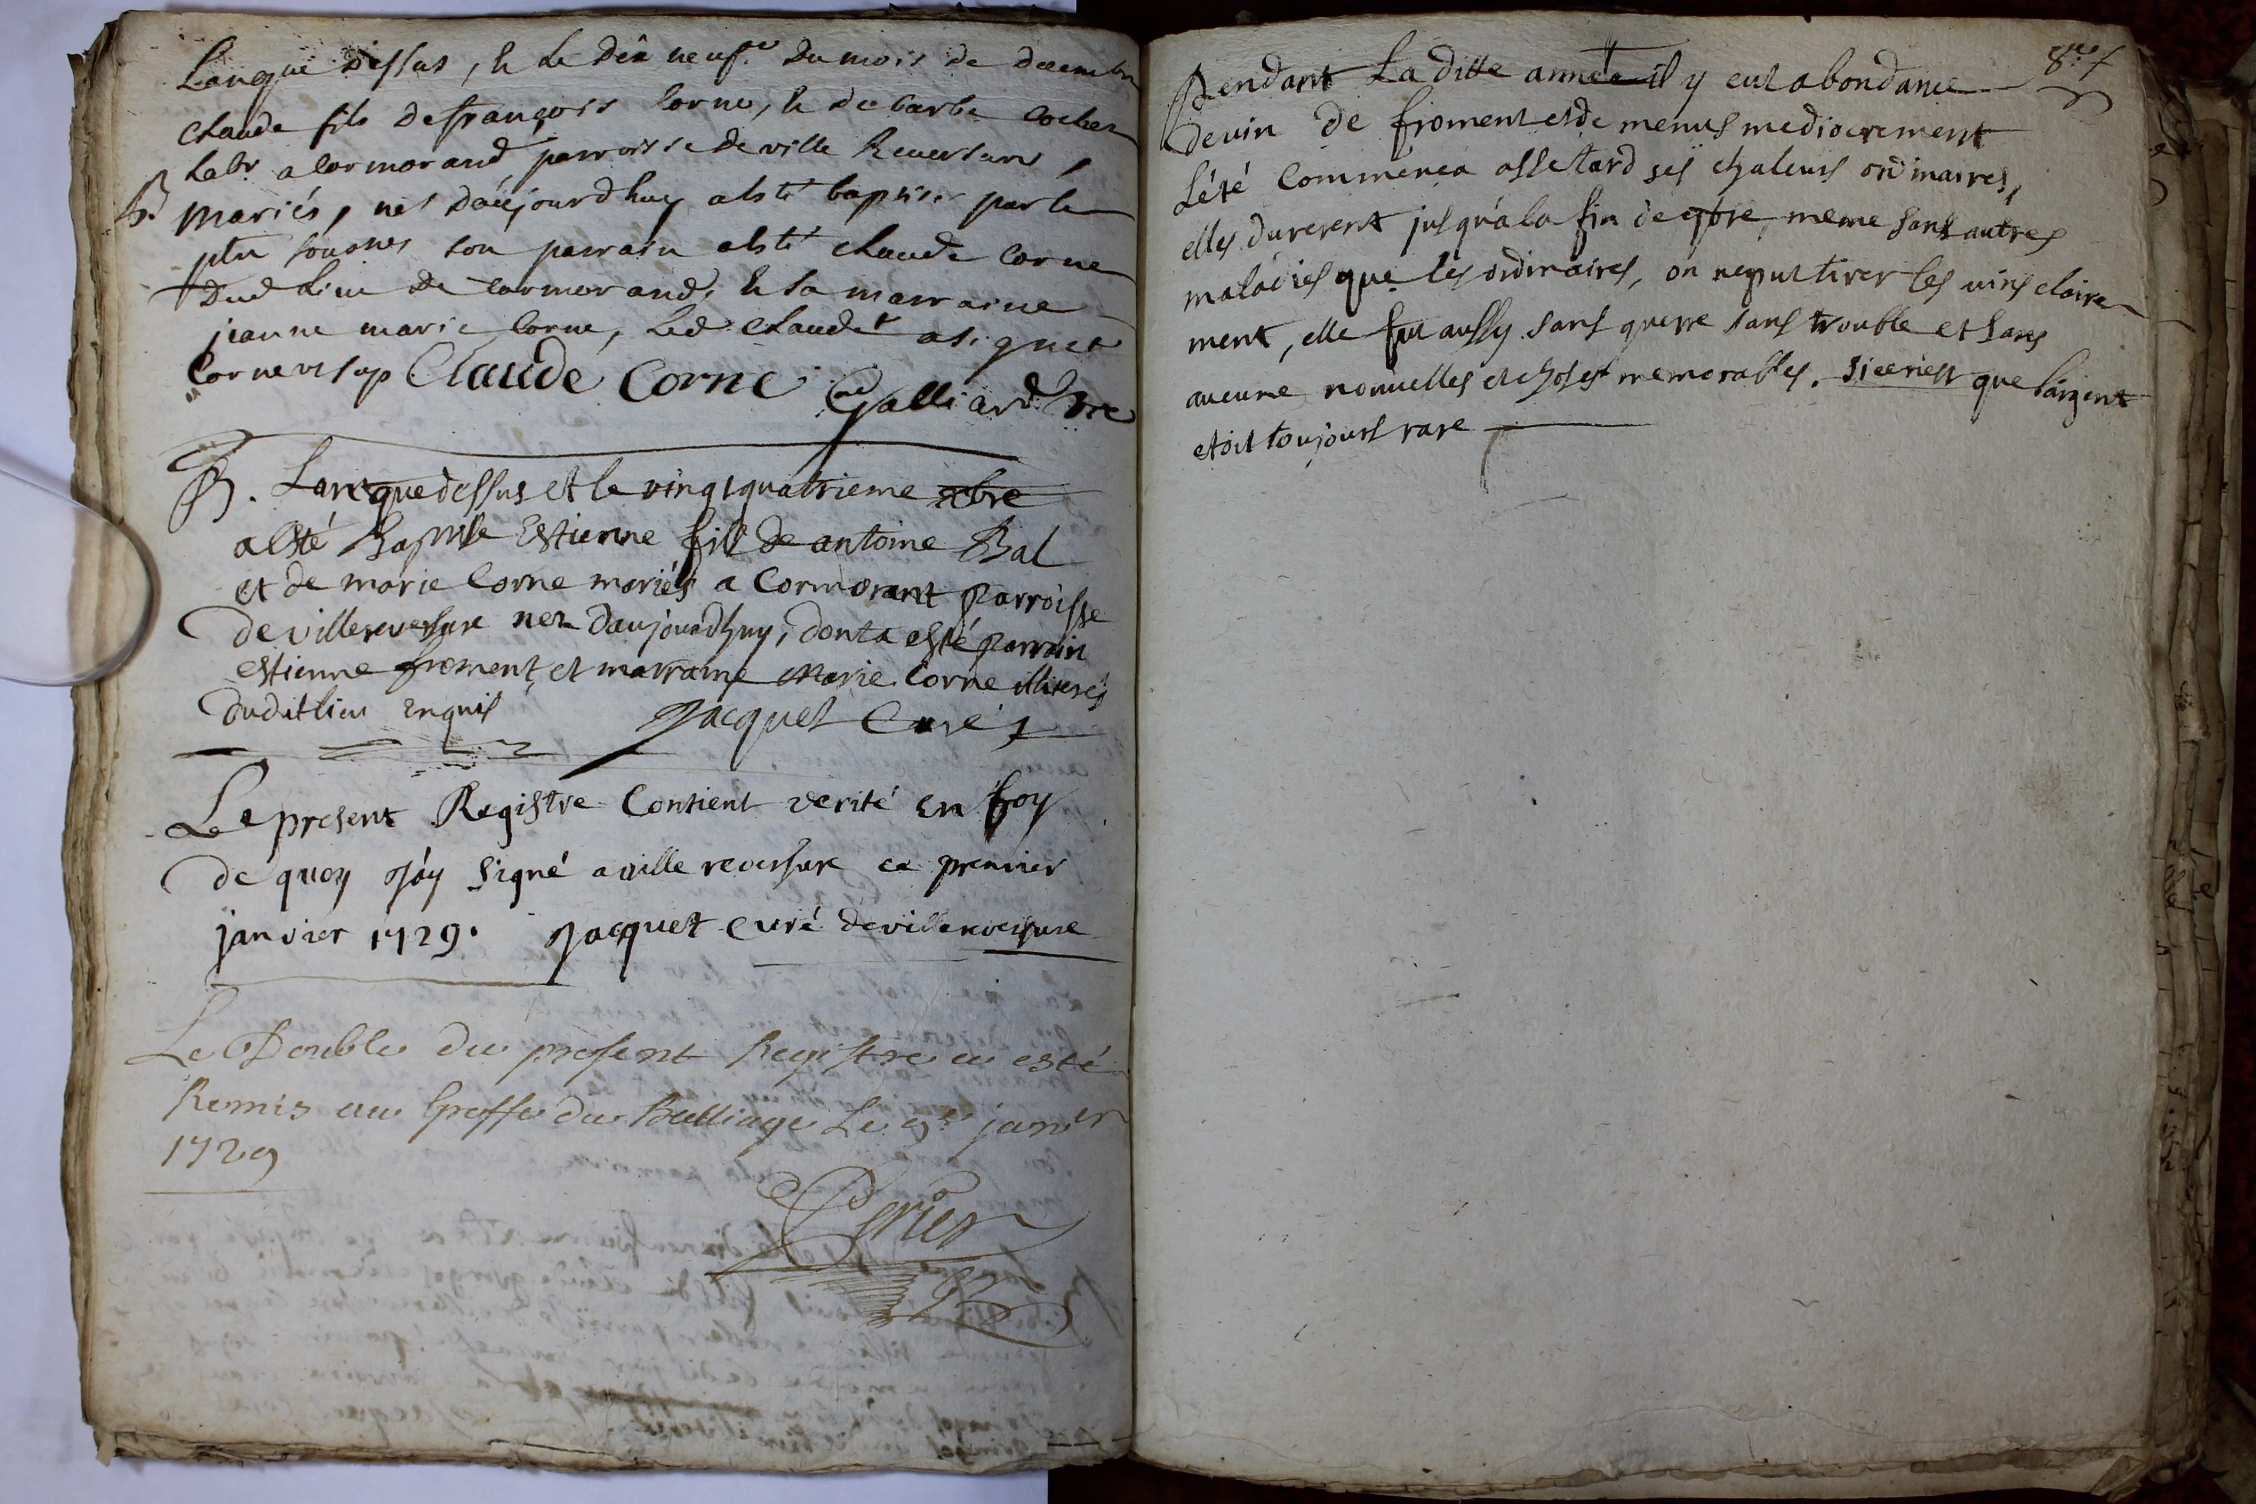 Lanque dessus, & le dix neufe du mois de decembre
claude fils de françois Corne, & de barbe cocher
labr a cormorand parroisse de ville Reversure,
B. mariés, nes d'aujourdhuy a esté baptisé par le
pbre son parrain a esté claude corne
dud lieu de cormorand, & sa marraine
jeanne marie Corne, led claude a signet
Claude Corne Galliard vre
B. Lan que dessus et le vingt quatrieme xbre
a esté Baptise Estienne fils de antoine Bal
et de marie Corne mariés a Cormorant Parroisse
de villereversure nez daujourdhuy, dont a esté parrain
estienne froment et marraine Marie Corne illiterés
dudit lieu enquis Jacquet Curé
Le present Registre Contient verité en foy
de quoy J'ay signé a ville reversure ce premier
janvier 1729. Jacquet curé de villereversure
Le Double du present Registre a esté
Remis au Greffe du Balliage Le 9e janer
1729
Perier
8re
Pendant La ditte année il y eut abondance
de vin de froment et de menus mediocrement
L'été Commença asse tard ses chaleurs ordinaires,
elles durerent jusqu'a la fin de 9bre meme sans autres
maladies que les ordinaires, on ne put tirer les vins claire
ment, elle fut aussy sans guerre sans trouble et sans
aucune nouvelles et choses memorables. si ce n'est que l'argent
etoit toujours rare